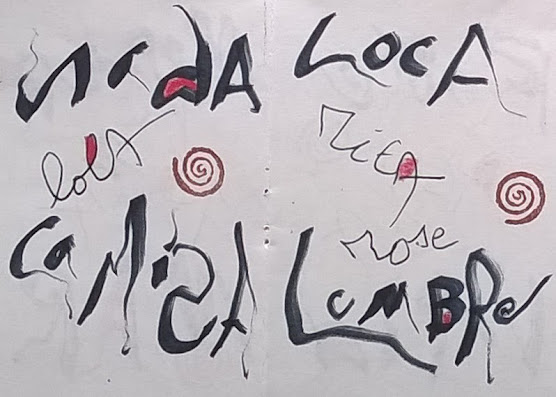 nadA
LOCA
lolA
RitA
CaMiSA
rose
LuMBRe